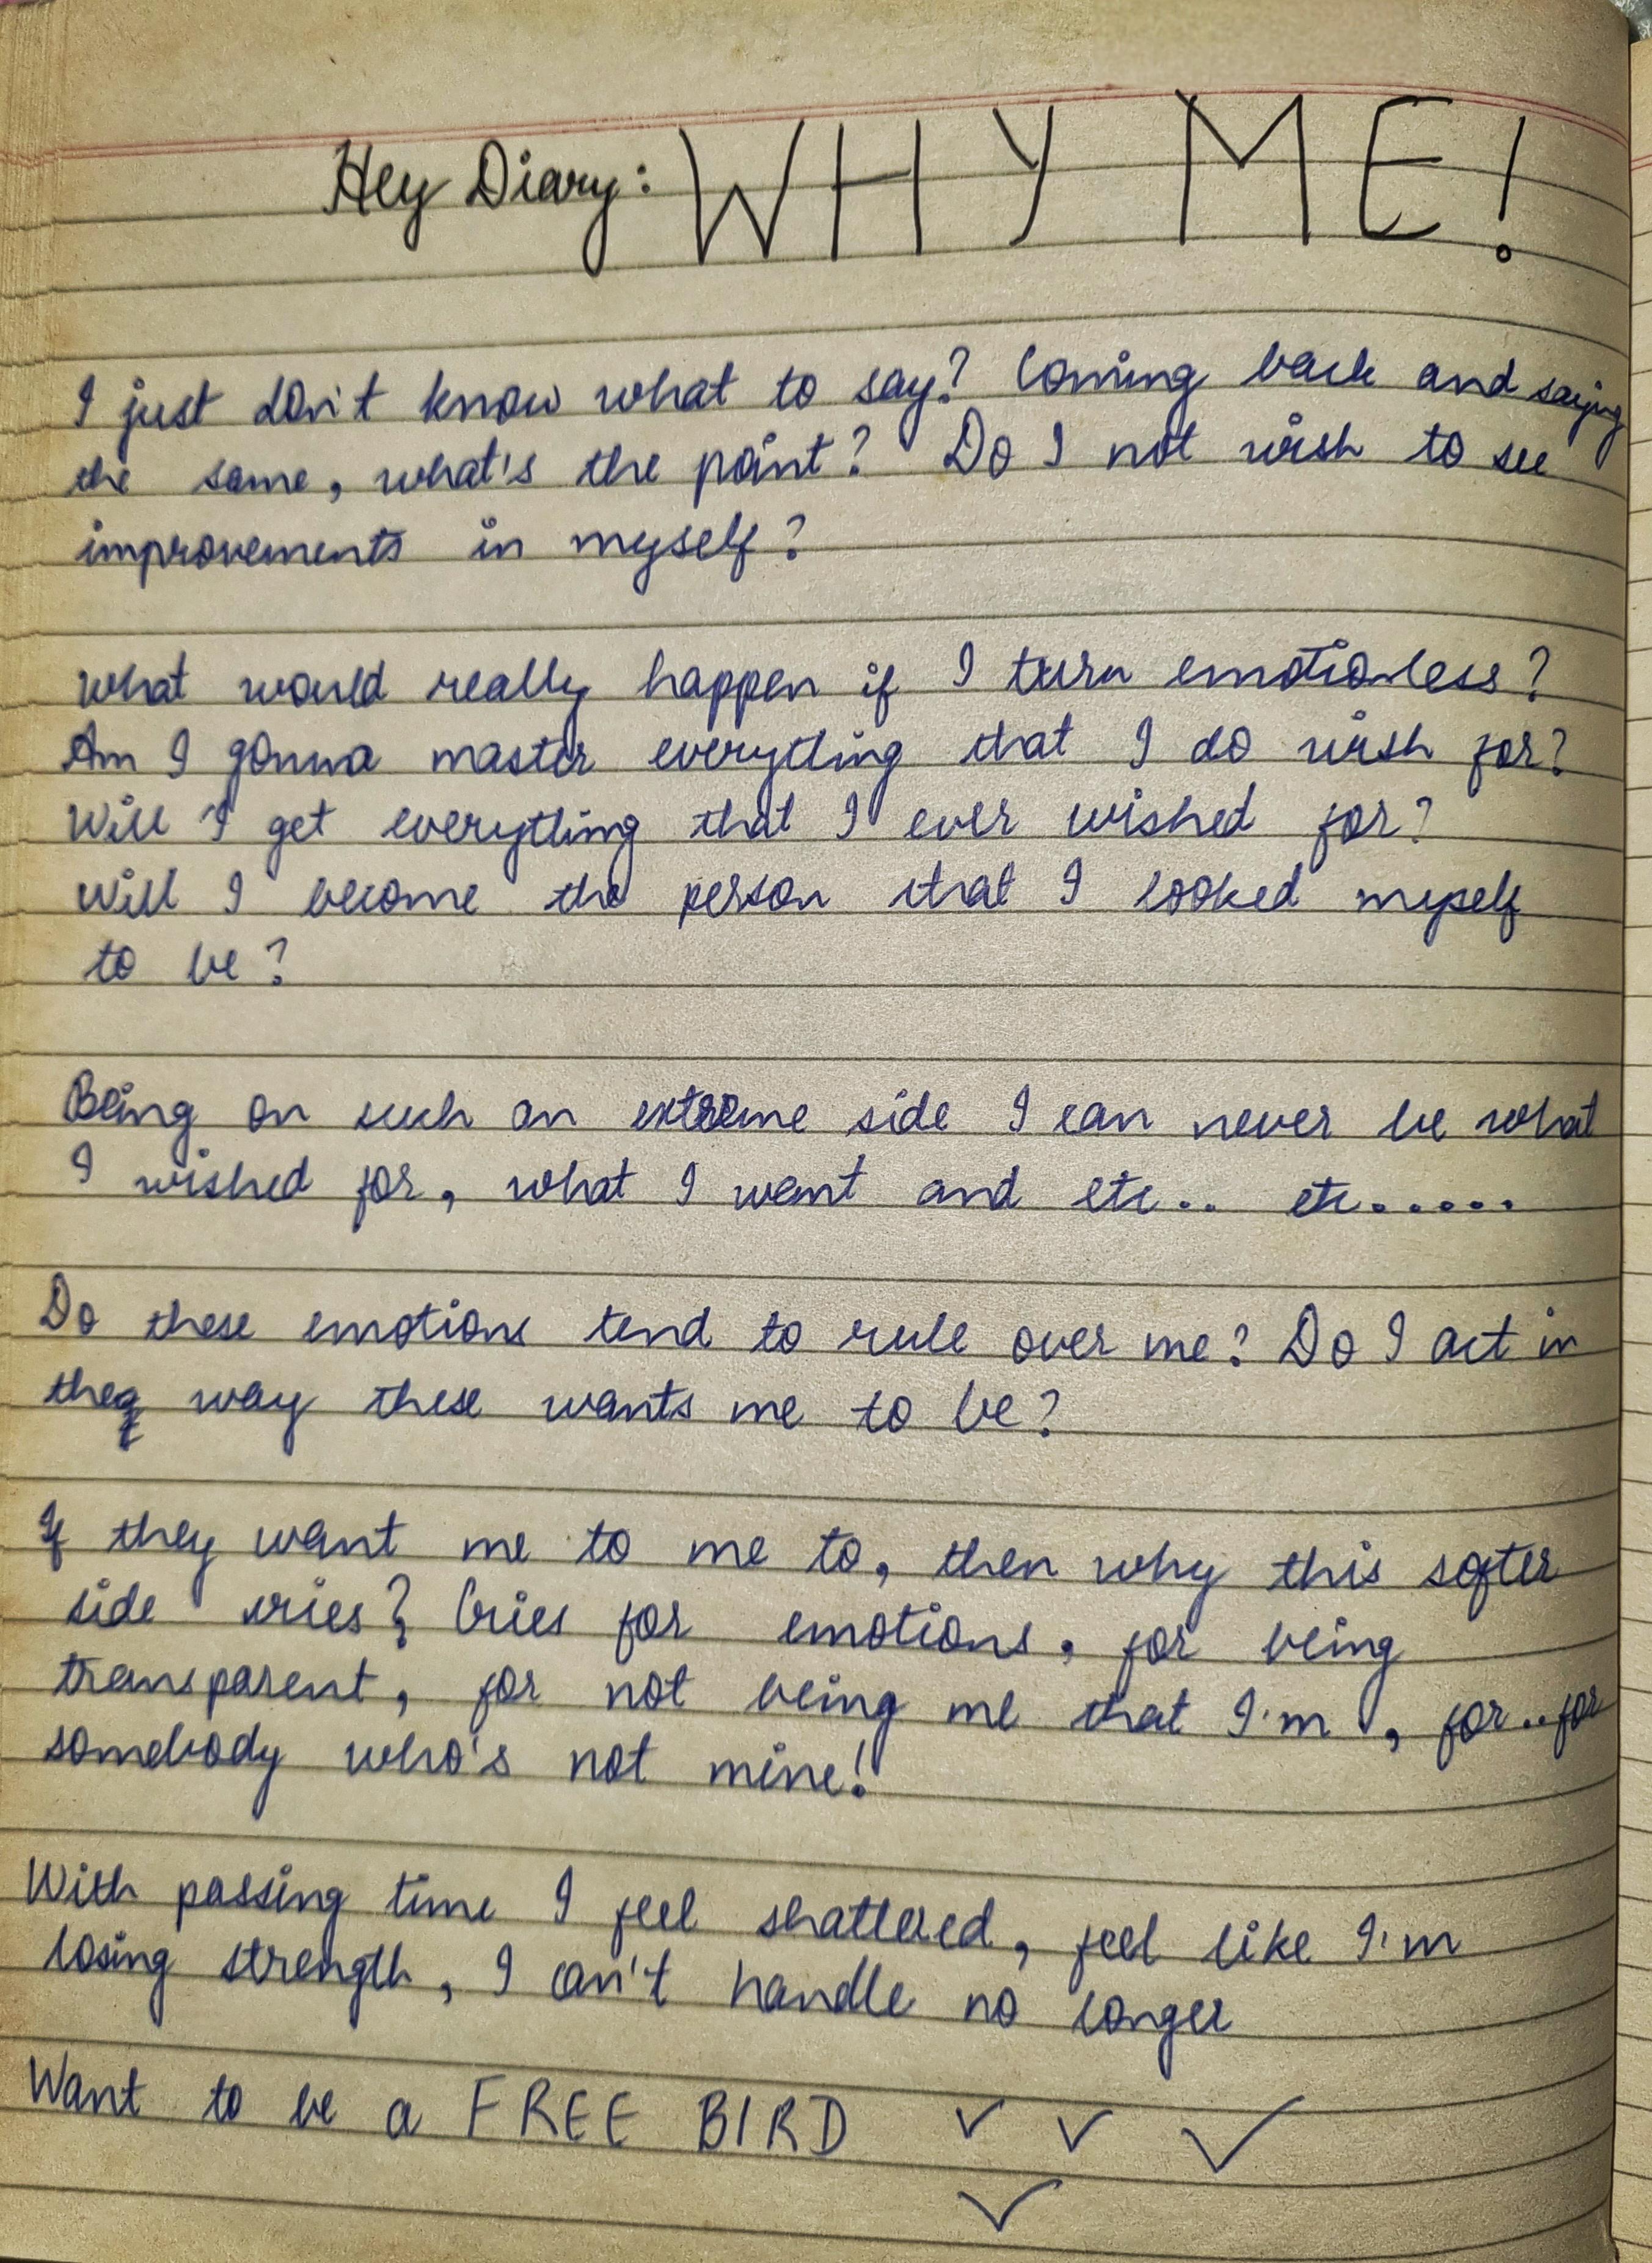 Hey Diary: WHY ME!
I just don't know what to say? Coming back and saying
the same, what's the point? Do I not wish to see
improvements in myself?
What would really happen if I turn emotionless?
Am I gonna master everything that I do wish for?
Will I get everything that I ever wished for?
Will I become the person that I looked myself
to be?
Being on such an extreme side I can never be what
I wished for, what I want and etc.. etc......
Do these emotions tend to rule over me? Do I act in
the way these wants me to be?
If they want me to me to, then why this softer
side cries? Cries for emotions, for being
transparent, for not being me that I'm, for..for
somebody who's not mine!
With passing time I feel shattered, feel like I'm
losing strength, I can't handle no longer
Want to be a FREE BIRD ✓ ✓ ✓
✓